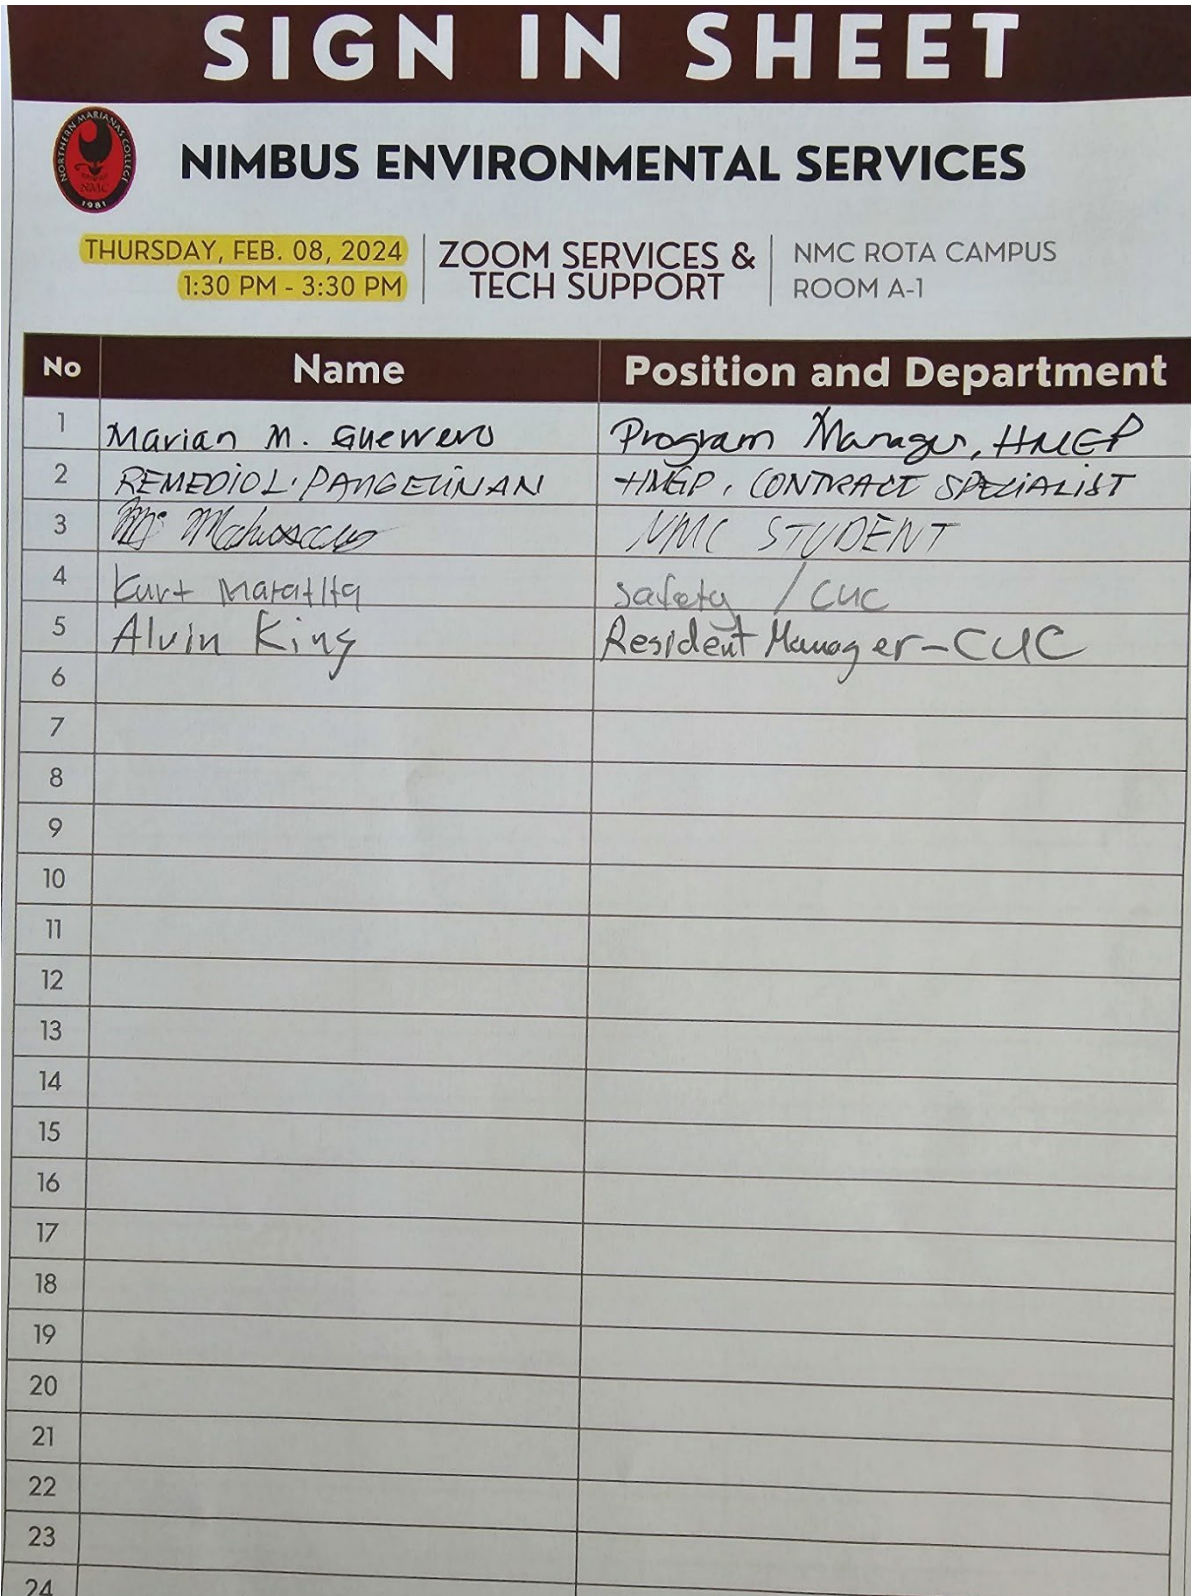 SIGN IN SHEET
NORTHERN MARIANAS COLLEGE
NMC
1981
NIMBUS ENVIRONMENTAL SERVICES
THURSDAY, FEB. 08, 2024
1:30 PM - 3:30 PM
ZOOM SERVICES &
TECH SUPPORT
NMC ROTA CAMPUS
ROOM A-1
No Name Position and Department
1 Marian M. Guerrero Program Manager, HMGP
2 REMEDIO L. PANGELINAN HMGP, CONTRACT SPECIALIST
3 NMC STUDENT
4 Kurt Maratita Safety / CUC
5 Alvin King Resident Manager-CUC
6
7
8
9
10
11
12
13
14
15
16
17
18
19
20
21
22
23
24